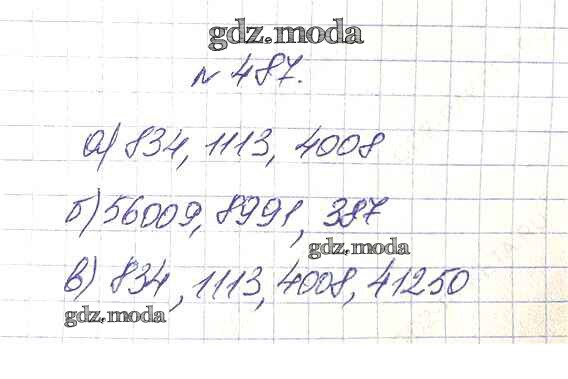 gdz.moda
№ 487.
а) 834, 1113, 4008
б) 56009, 8991, 387
gdz.moda
в) 834, 1113, 4008, 41250
gdz.moda